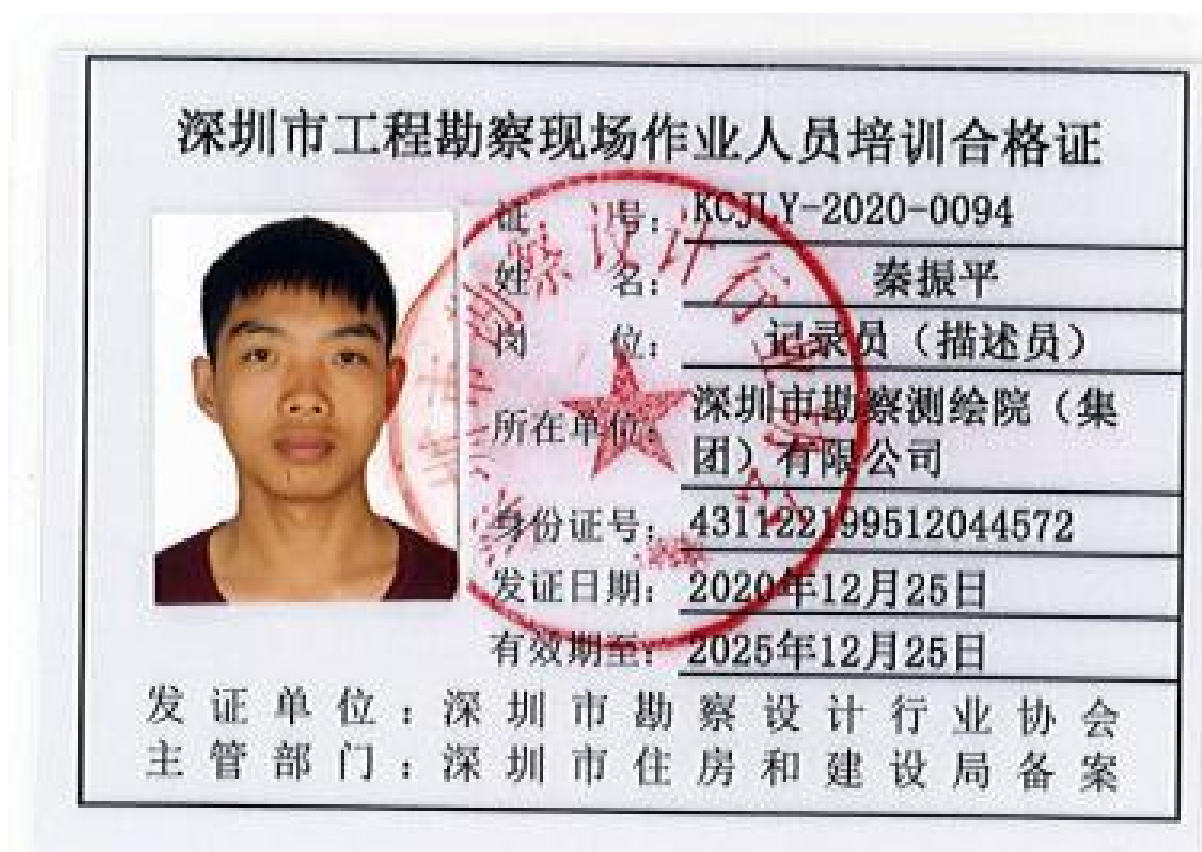 深圳市工程勘察现场作业人员培训合格证
证 号：KCJLY-2020-0094
姓 名：秦振平
岗 位：记录员（描述员）
所在单位：深圳市勘察测绘院（集
团）有限公司
身份证号：431122199512044572
发证日期：2020年12月25日
有效期至：2025年12月25日
发证单位：深圳市勘察设计行业协会
主管部门：深圳市住房和建设局备案